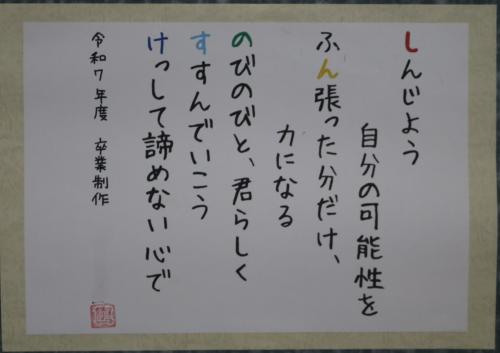 しんじよう
自分の可能性を
ふん張った分だけ、
力になる
のびのびと、君らしく
すすんでいこう
けっして諦めない心で
令和7年度 卒業制作